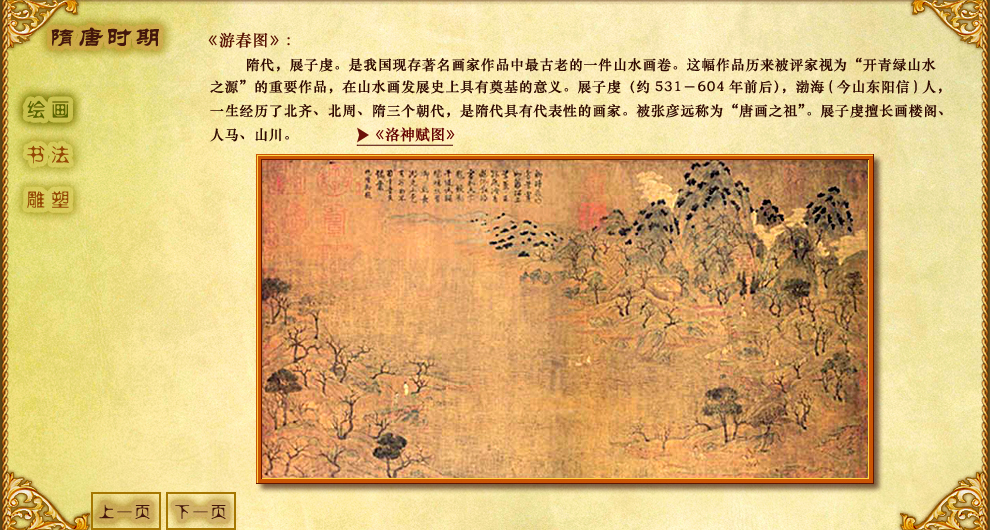 隋唐时期
绘画
书法
雕塑
《游春图》:
隋代，展子虔。是我国现存著名画家作品中最古老的一件山水画卷。这幅作品历来被评家视为“开青绿山水
之源”的重要作品，在山水画发展史上具有奠基的意义。展子虔（约 531－604 年前后），渤海（今山东阳信）人，
一生经历了北齐、北周、隋三个朝代，是隋代具有代表性的画家。被张彦远称为“唐画之祖”。展子虔擅长画楼阁、
人马、山川。
《洛神赋图》
上一页
下一页